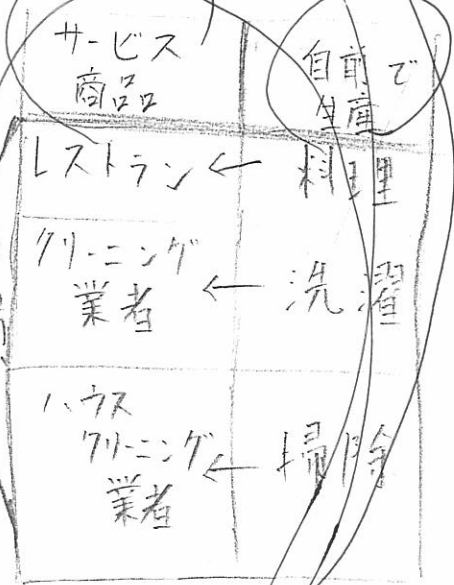 サービス
商品
自前で
生産
レストラン ← 料理
クリーニング
業者 ← 洗濯
ハウス
クリーニング
業者 ← 掃除